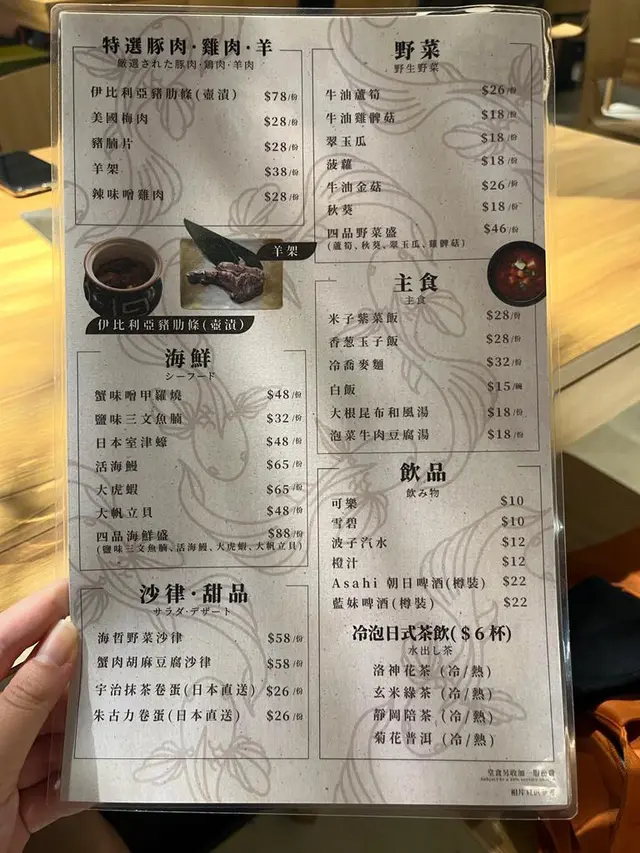 特選豚肉·雞肉·羊
厳選された豚肉·鶏肉·羊肉
伊比利亞豬肋條(壺漬) $78/份
美國梅肉 $28/份
豬腩片 $28/份
羊架 $38/份
辣味噌雞肉 $28/份
羊架
伊比利亞豬肋條(壺漬)
海鮮
シーフード
蟹味噌甲羅燒 $48/份
鹽味三文魚腩 $32/份
日本室津蠔 $48/份
活海鰻 $65/份
大虎蝦 $65/份
大帆立貝 $48/份
四品海鮮盛 $88/份
(鹽味三文魚腩、活海鰻、大虎蝦、大帆立貝)
沙律·甜品
サラダ·デザート
海哲野菜沙律 $58/份
蟹肉胡麻豆腐沙律 $58/份
宇治抹茶卷蛋(日本直送) $26/份
朱古力卷蛋(日本直送) $26/份
野菜
野生野菜
牛油蘆筍 $26/份
牛油雞髀菇 $18/份
翠玉瓜 $18/份
菠蘿 $18/份
牛油金菇 $26/份
秋葵 $18/份
四品野菜盛 $46/份
(蘆筍、秋葵、翠玉瓜、雞髀菇)
主食
主食
米子紫菜飯 $28/份
香葱玉子飯 $28/份
冷喬麥麵 $32/份
白飯 $15/碗
大根昆布和風湯 $18/份
泡菜牛肉豆腐湯 $18/份
飲品
飲み物
可樂 $10
雪碧 $10
波子汽水 $12
橙汁 $12
Asahi 朝日啤酒(樽裝) $22
藍妹啤酒(樽裝) $22
冷泡日式茶飲($6杯)
水出し茶
洛神花茶 (冷/熱)
玄米綠茶 (冷/熱)
靜岡陪茶 (冷/熱)
菊花普洱 (冷/熱)
堂食另收加一服務費